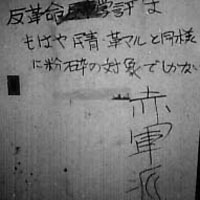 反革命反学評は
もはや民青・革マルと同様
に粉砕の対象でしかない
赤軍派